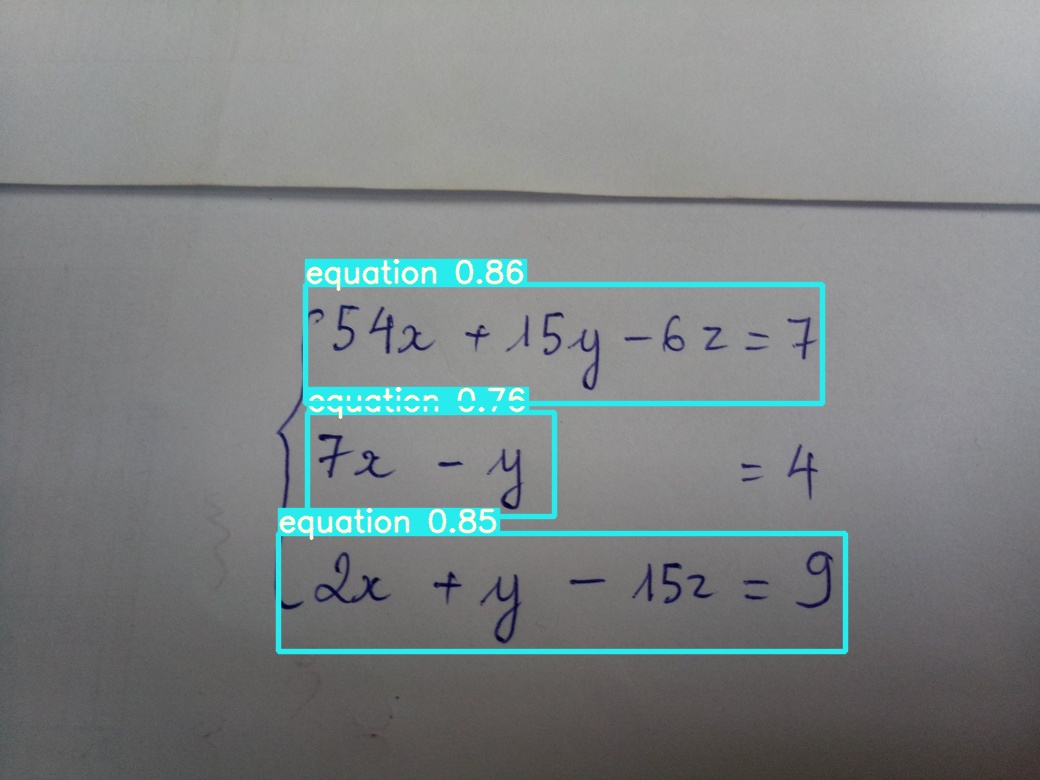 equation 0.86
54x + 15y - 6z = 7
equation 0.76
7x - y = 4
equation 0.85
2x + y - 15z = 9